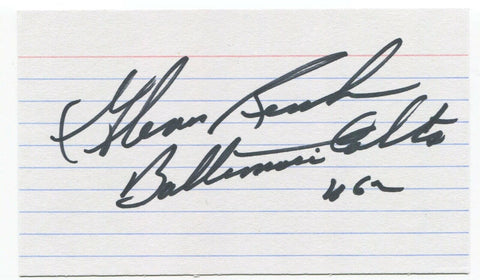 Glenn Ressler
Baltimore Colts
#62